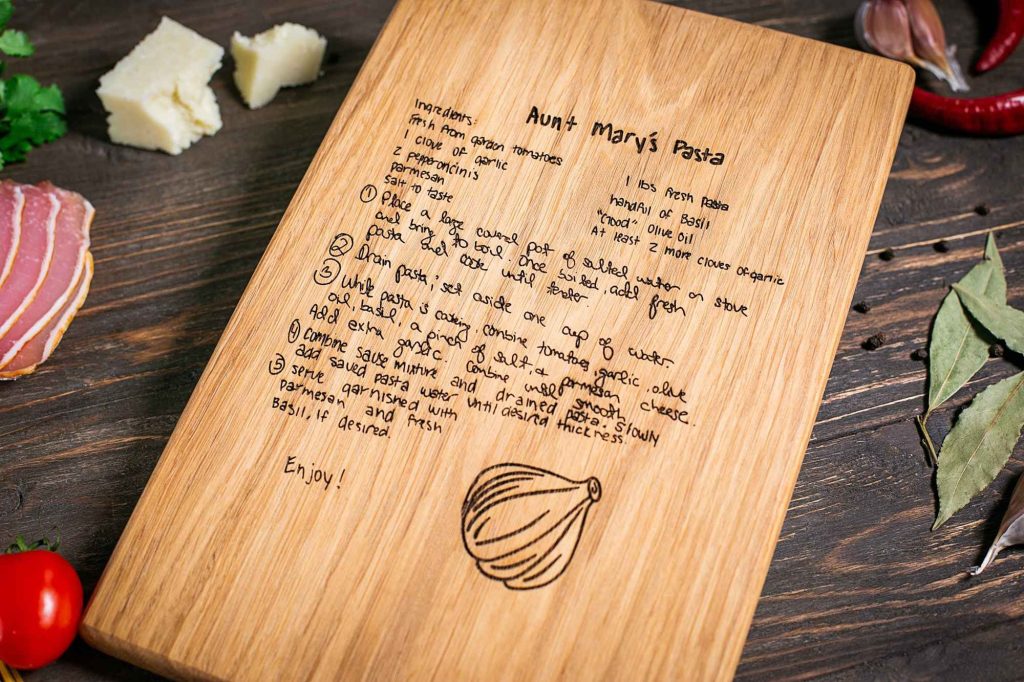 Aunt Mary's Pasta
Ingredients:
Fresh from garden tomatoes
1 clove of garlic
2 pepperoncinis
parmesan
salt to taste
1 lbs fresh pasta
handful of Basil
"Good" Olive Oil
At least 2 more cloves of garlic
① Place a large covered pot of salted water on stove
and bring to boil. Once boiled, add fresh
pasta and cook until tender
② Drain pasta, set aside one cup of water.
③ While pasta is cooking, combine tomatoes, garlic, olive
oil, basil, a pinch of salt, parmesan cheese.
Add extra garlic. Combine until smooth.
④ Combine sause mixture and drained pasta. Slowly
add saved pasta water until desired thickness.
⑤ serve garnished with
parmesan and fresh
Basil, if desired.
Enjoy!